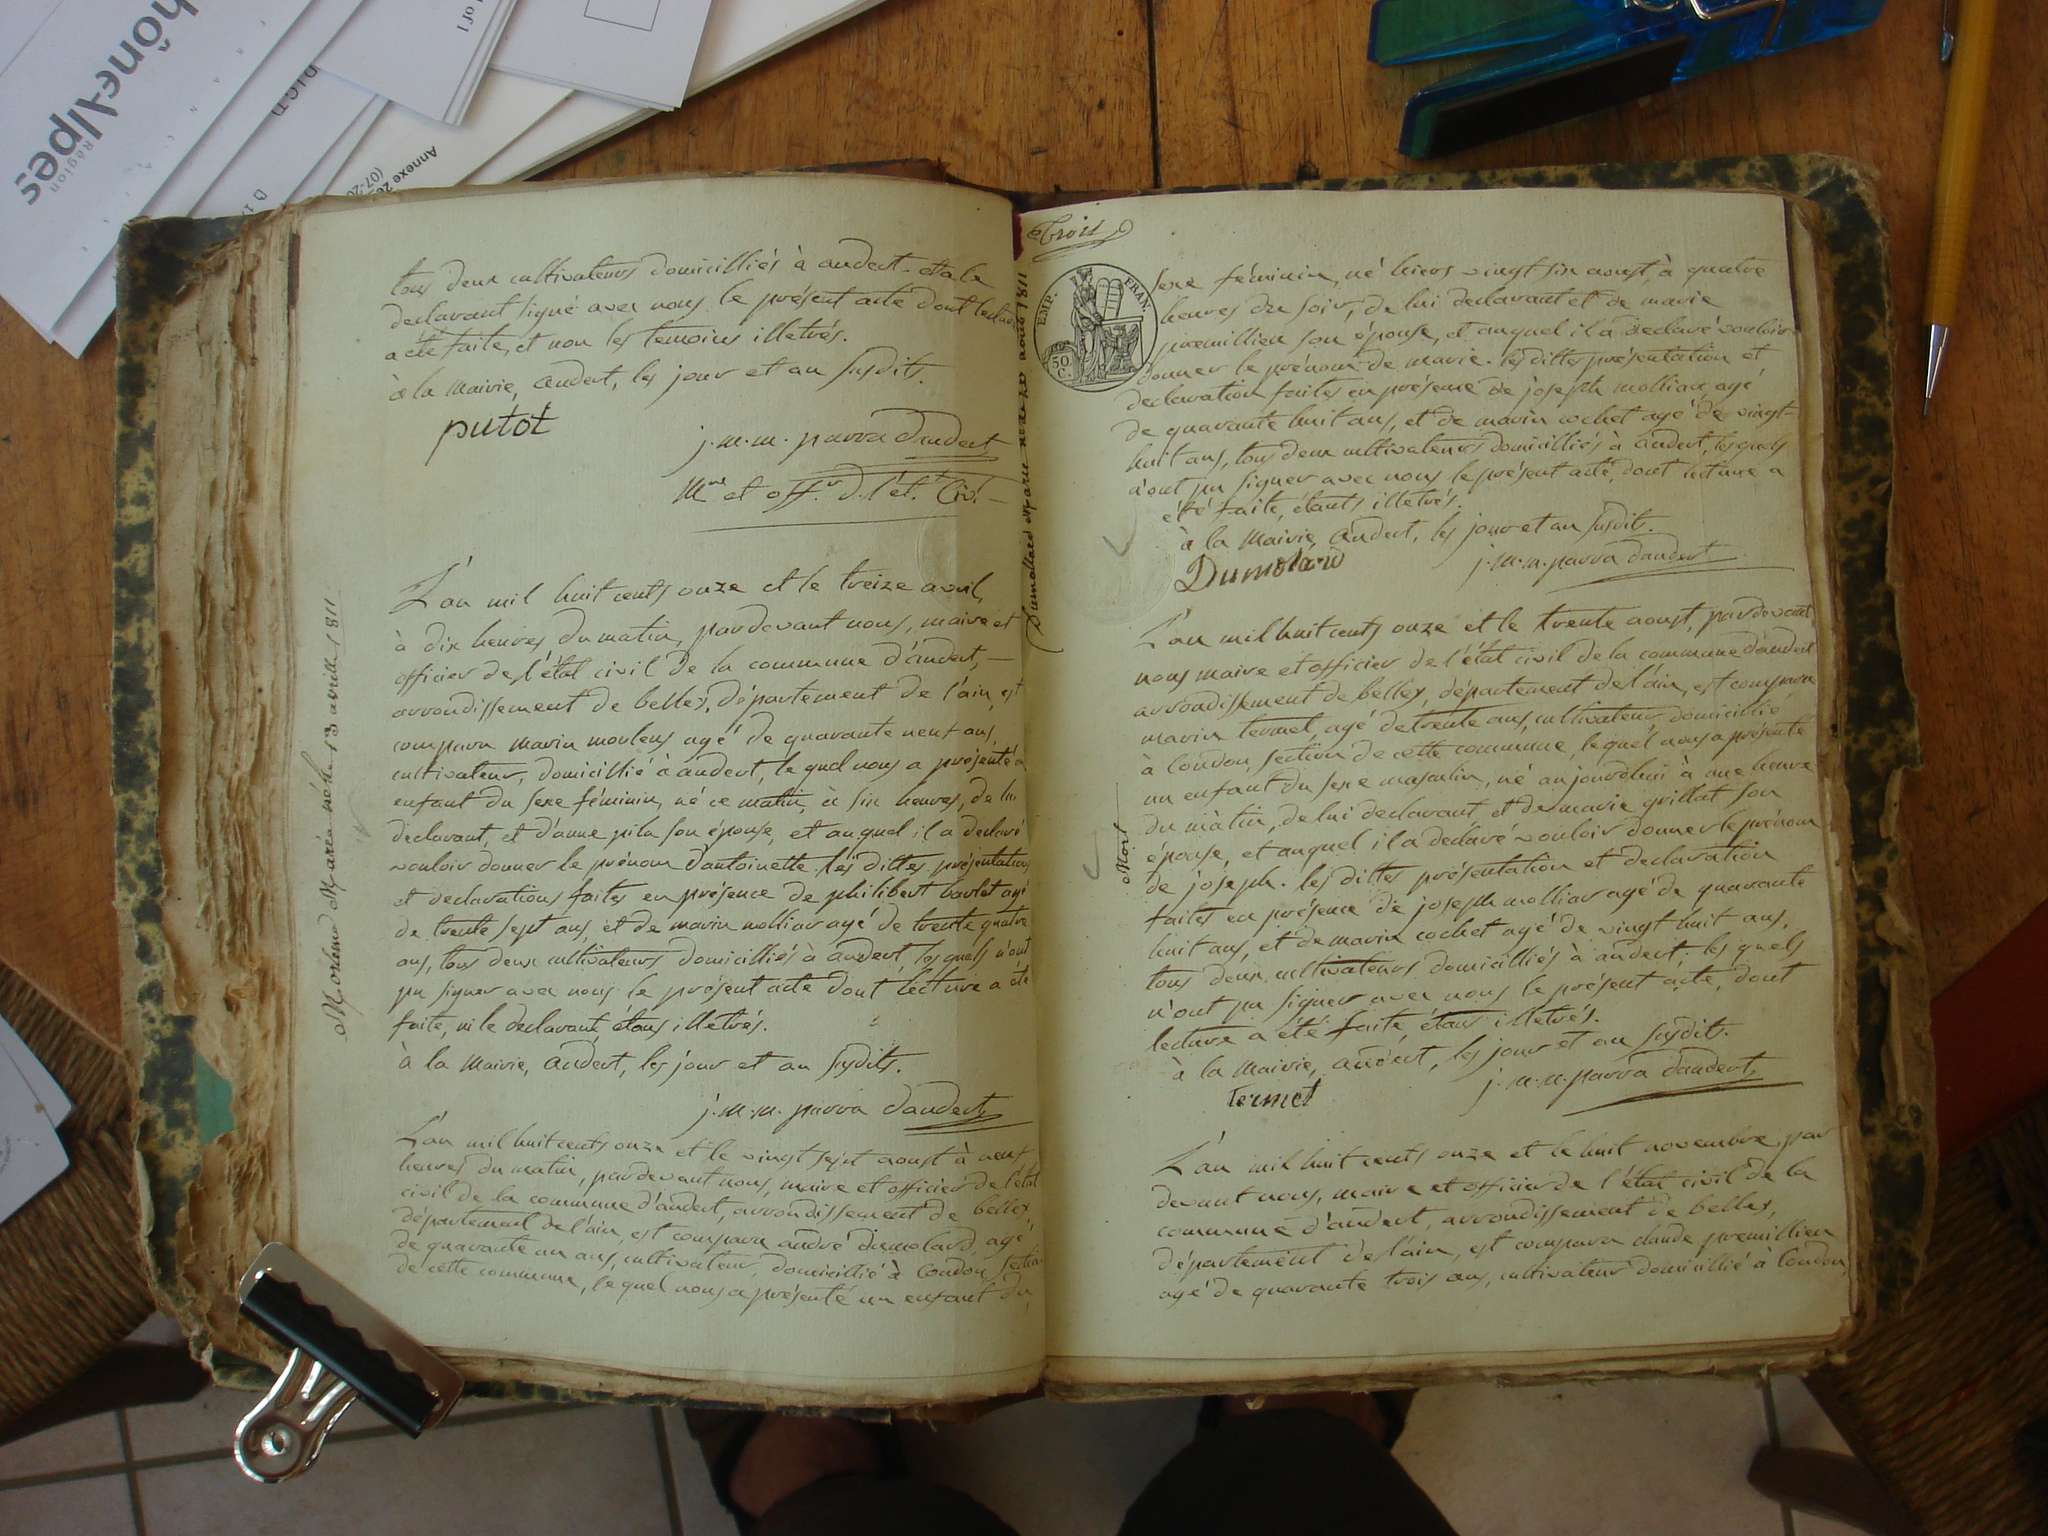 hôneAlpes
Région
Annexe 2
(07-20
of 1
tous deux cultivateurs domicilliés à andert. et a le
declarant signé avec nous le présent acte dont lecture
a été faite, et non les temoins illetrés.
à la Mairie, andert, les jour et an susdits.
putot
j. m. m. parra d'andert
M.re et off.r d. l'ét.t Civ.l
Morlens Marie née le 13 avrille 1811
L'an mil huit cents onze et le treize avril,
à dix heures du matin, pardevant nous, maire et
officier de l'état civil de la commune d'andert,
arrondissement de belley, département de l'ain, est
comparu marin morlens agé de quarante neuf ans,
cultivateur, domicillié à andert, le quel nous a présenté un
enfant du sexe féminin, né ce matin, à six heures, de lui
déclarant, et d'anne pila son épouse, et auquel il a declaré
vouloir donner le prénom d'antoinette. les dittes présentation
et declarations faites en présence de philibert barlet agé
de trente sept ans, et de marin molliar agé de trente quatre
ans, tous deux cultivateurs domicilliés à andert, les quels n'ont
pu signer avec nous le présent acte dont lecture a été
faite, ni le declarant, étans illetrés.
à la Mairie, andert, les jour et an susdits.
j. m. m. parra d'andert
L'an mil huit cents onze et le vingt sept aoust à neuf
heures du matin, pardevant nous, maire et officier de l'état
civil de la commune d'andert, arrondissement de belley,
département de l'ain, est comparu andré dumolard, agé
de quarante un ans, cultivateur, domicillié à Condon, section
de cette commune, le quel nous a présenté un enfant du
Trois
EMP. FRAN.
50 C.
Dumollard Marie née le août 1811
sexe féminin, né hiers vingt six aoust, à quatre
heures du soir, de lui declarant et de marie
premillieu son épouse, et auquel il a declaré vouloir
donner le prénom de marie. les dittes présentation et
declaration faites en présence de joseph molliar agé
de quarante huit ans, et de marin cochet agé de vingt-
huit ans, tous deux cultivateurs domicilliés à andert, les quels
n'ont pu signer avec nous le présent acte, dont lecture a
été faite, étants illetrés.
à la Mairie, andert, les jour et an susdit.
Dumolard
j. m. m. parra d'andert
L'an mil huit cents onze et le trente aoust, pardevant
nous maire et officier de l'état civil de la commune d'andert
arrondissement de belley, département de l'ain, est comparu
marin termet, agé de trente ans, cultivateur, domicillié
à Condon, section de cette commune, le quel nous a présenté
un enfant du sexe masculin, né aujourdhui à une heure
du matin, de lui declarant, et de marie grillat son
épouse, et auquel il a declaré vouloir donner le prénom
Mort
de joseph. les dittes présentation et declaration
faites en présence de joseph molliar agé de quarante
huit ans, et de marin cochet agé de vingt huit ans,
tous deux cultivateurs domicilliés à andert; les quels
n'ont pu signer avec nous le présent acte, dont
lecture a été faite étans illetrés.
à la Mairie, andert, les jour et an susdits.
termet
j. m. m. parra d'andert,
L'an mil huit cents onze et le huit novembre, par
devant nous, maire et officier de l'état civil de la
commune d'andert, arrondissement de belley,
département de l'ain, est comparu claude premillieu
agé de quarante trois ans, cultivateur domicillié à Condon,